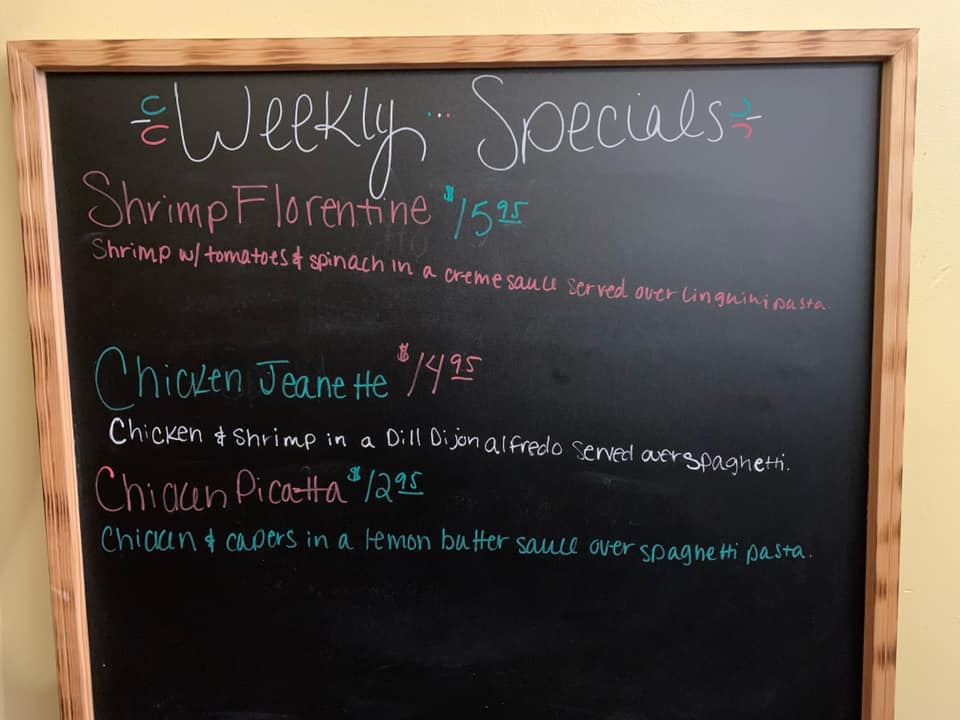 Weekly Specials
Shrimp Florentine $15.95
Shrimp w/ tomatoes & spinach in a creme sauce served over linguini pasta.
Chicken Jeanette $14.95
Chicken & Shrimp in a Dill Dijon alfredo served over spaghetti.
Chicken Picatta $12.95
Chicken & capers in a lemon butter sauce over spaghetti pasta.